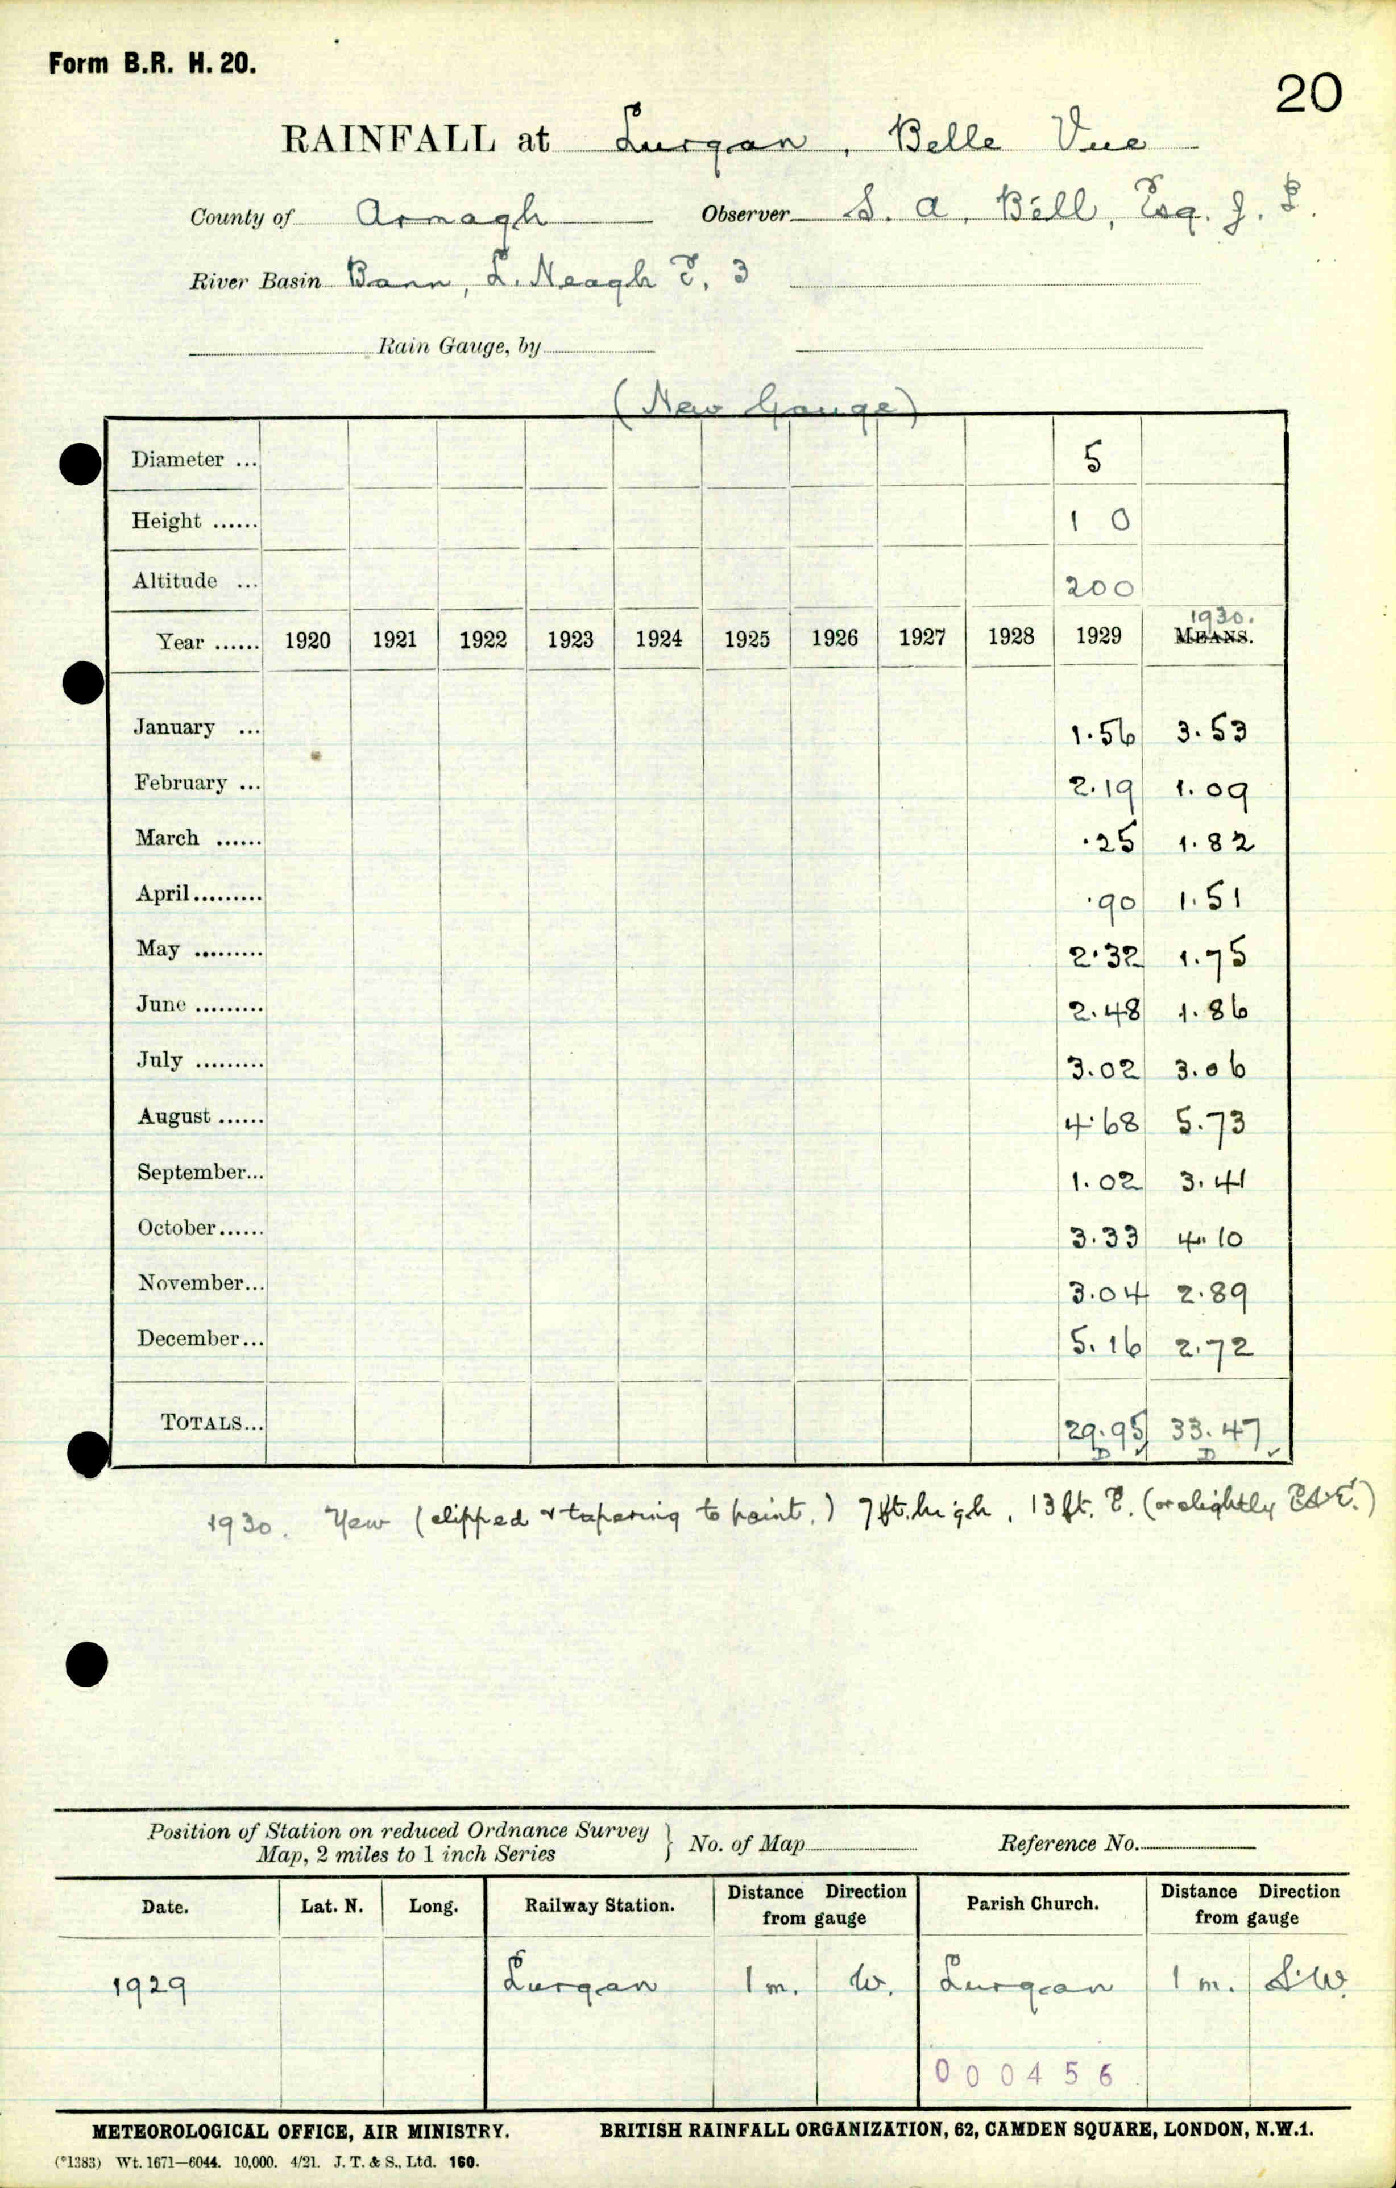 Form B.R. H. 20.
20
RAINFALL at Lurgan, Belle Vue
County of Armagh Observer S. A. Bell, Esq. J. P.
River Basin Bann, L. Neagh E. 3
Rain Gauge, by
(New Gauge)
Diameter ... 5
Height ...... 1 0
Altitude ... 200
Year ...... 1920 1921 1922 1923 1924 1925 1926 1927 1928 1929 MEANS. 1930.
January ... 1.56 3.53
February ... 2.19 1.09
March ...... .25 1.82
April......... .90 1.51
May ......... 2.32 1.75
June ......... 2.48 1.86
July ......... 3.02 3.06
August ...... 4.68 5.73
September... 1.02 3.41
October...... 3.33 4.10
November... 3.04 2.89
December... 5.16 2.72
TOTALS... 29.95 33.47
D ✓ D ✓
1930. Yew (clipped & tapering to point.) 7 ft. high, 13 ft. E. (or slightly
Position of Station on reduced Ordnance Survey
Map, 2 miles to 1 inch Series } No. of Map Reference No.
Date. Lat. N. Long. Railway Station. Distance Direction from gauge Parish Church. Distance Direction from gauge
1929 Lurgan 1 m. W. Lurgan 1 m. S.W.
000456
METEOROLOGICAL OFFICE, AIR MINISTRY. BRITISH RAINFALL ORGANIZATION, 62, CAMDEN SQUARE, LONDON, N.W.1.
(*1383) Wt. 1671—6044. 10,000. 4/21. J. T. & S., Ltd. 160.